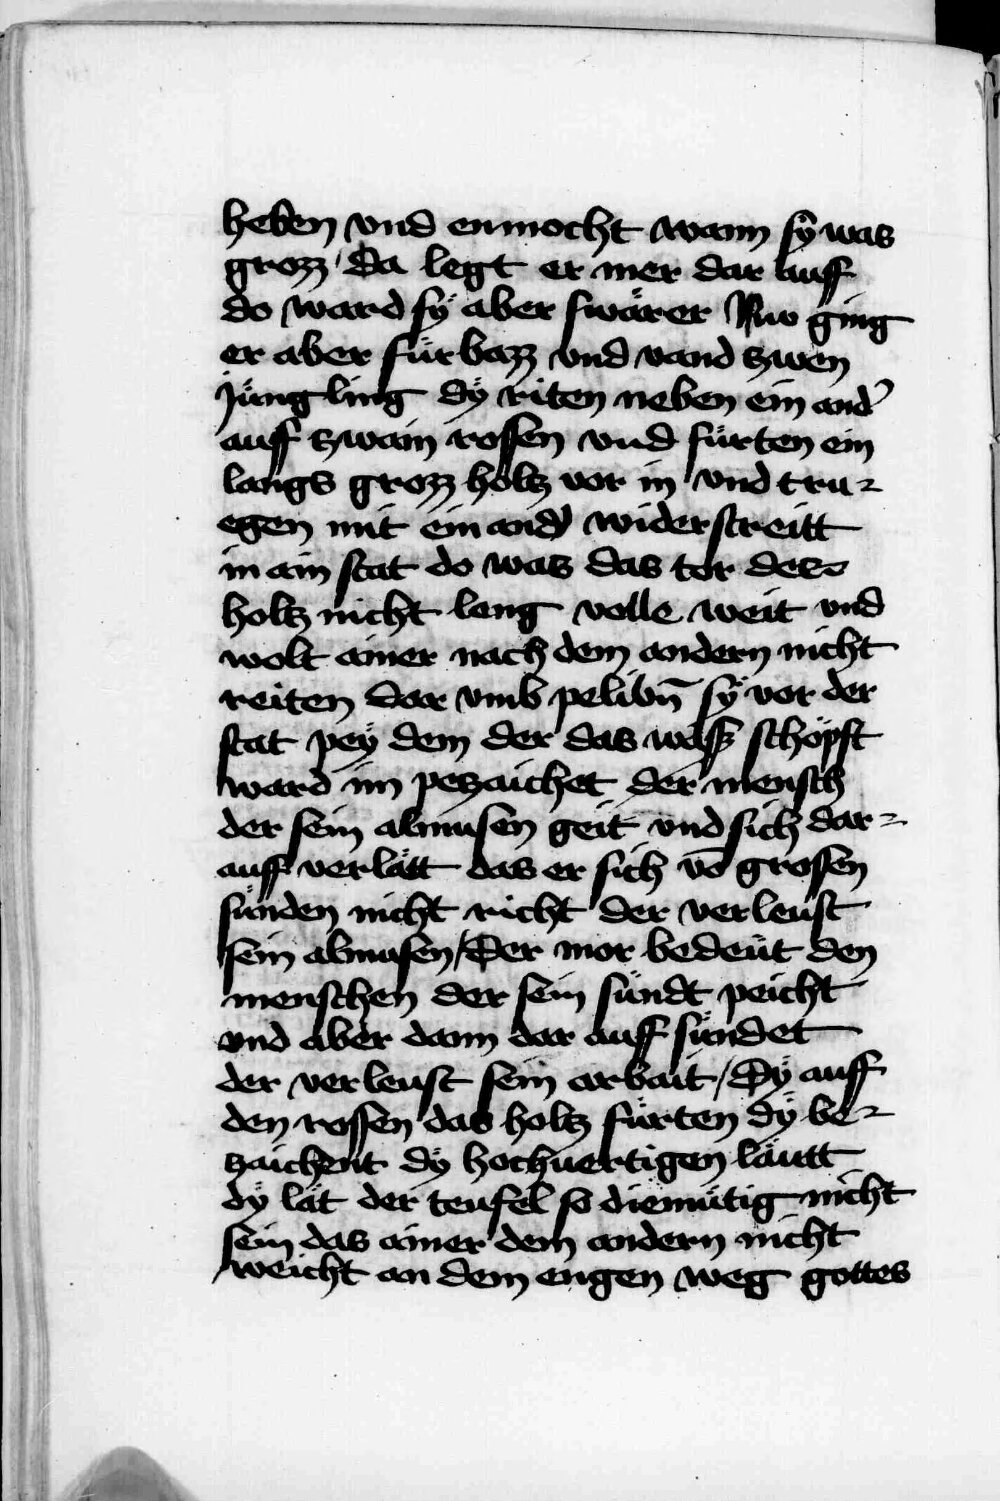 heben vnd enmocht wann sÿ was
grozz / da legt er mer dar auff
do ward sÿ aber swärer Nw ging
er aber fürbazz vnd vand zwen
Jüngling dÿ riten neben ein and̕
auff zwain rossen vnd fürten ein
langs grozz holtz vor in vnd tru⸗
egen mit ein and̕ widerstreitt
in ain stat do was das tor des
holtz nicht leng volle weit vnd
wolt ainer nach dem andern nicht
reiten dar vmb pelibn̄ sÿ vor der
stat peÿ dem der das wassz schöpft
ward im pezaichet der mensch
der sein almusen geit vnd sich dar⸗
auff verlätt das er sich vō grossen
sünden nicht richt der verleust
sein almusen / Der mor bedeüt den
menschen der sein sündt peicht
vnd aber dann dar auff sündet
der verleust sein arbait / Dÿ auff
den rossen das holtz fürten dÿ be⸗
zaichent dÿ hochuertigen läutt
dÿ lät der teufel so diemütig nicht
sein das ainer dem andern nicht
weicht an dem engen weg gottes